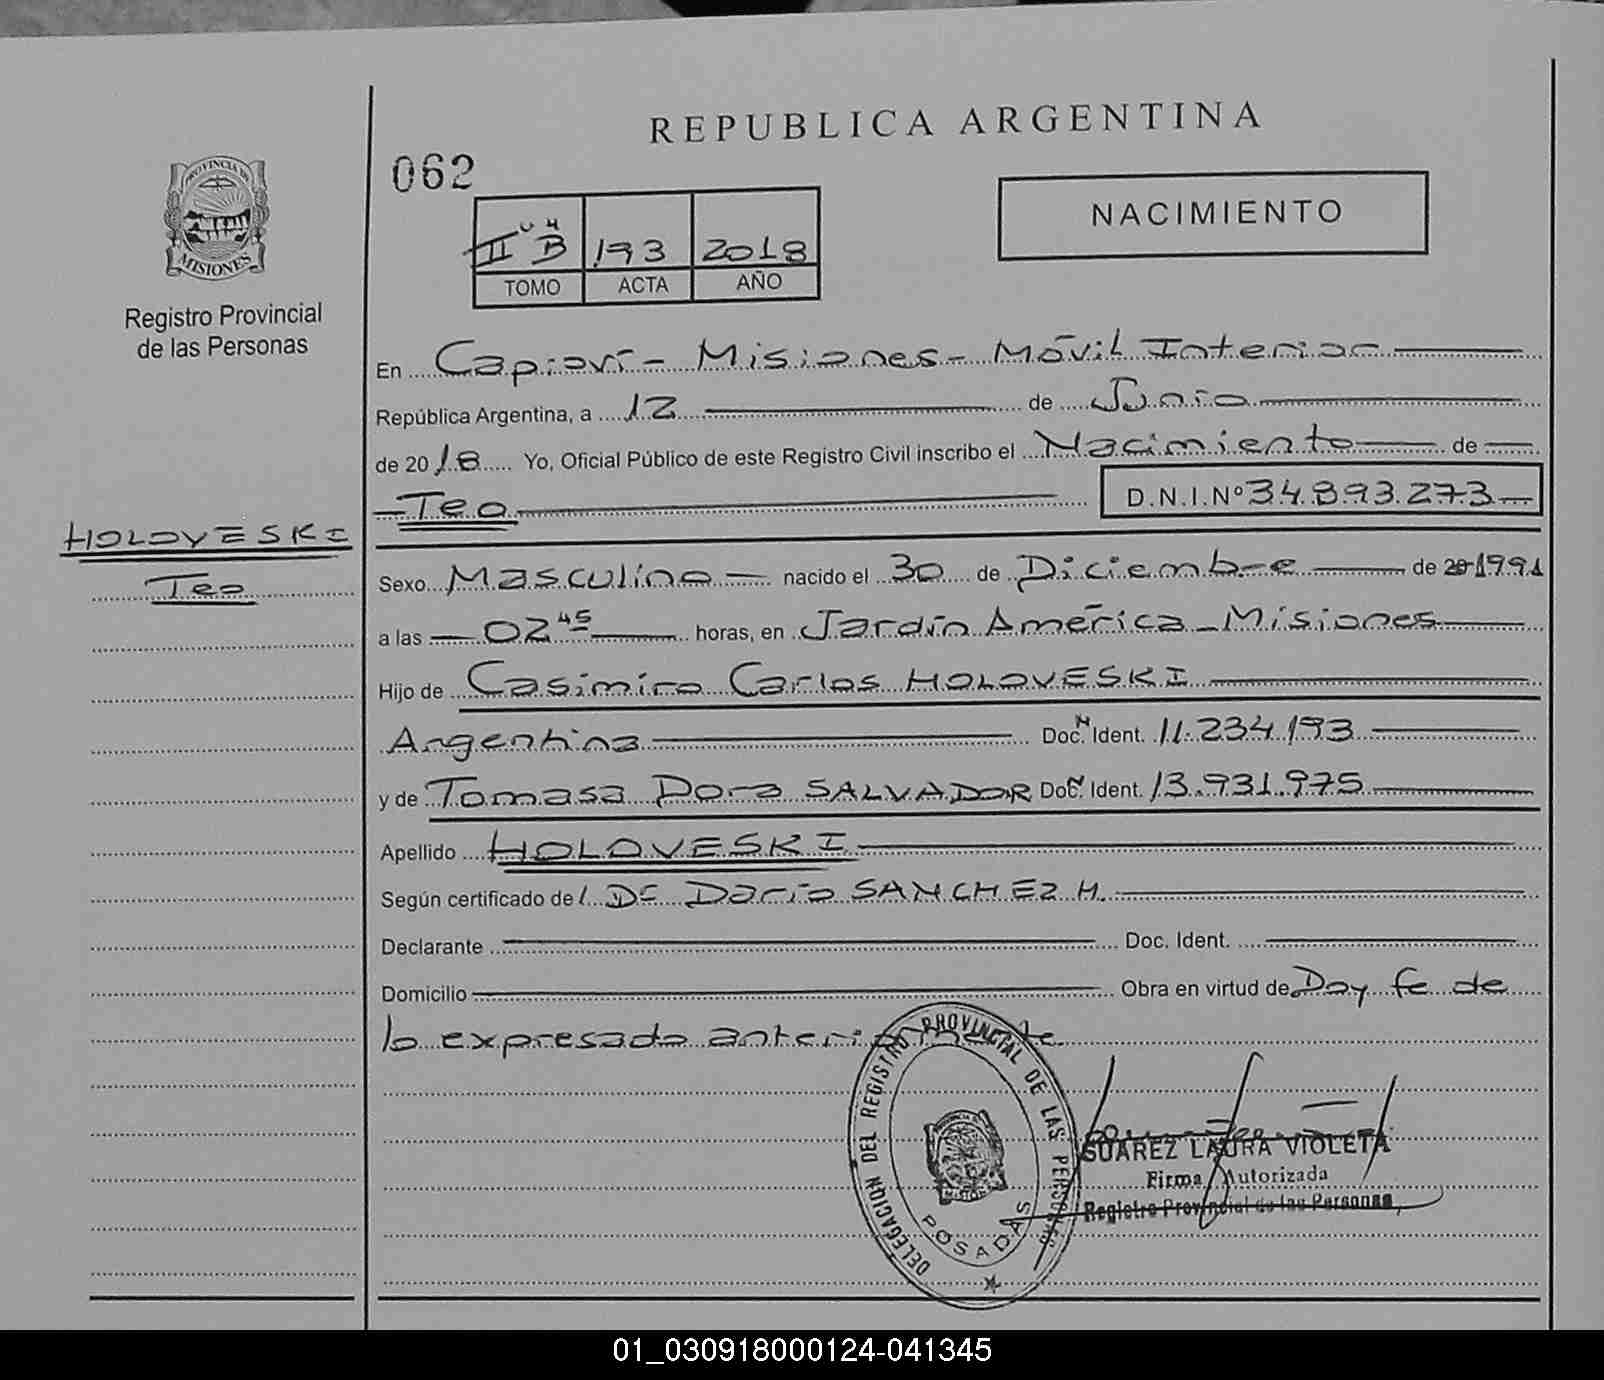 REPUBLICA ARGENTINA
062
NACIMIENTO
II "B" 193 2018
TOMO ACTA AÑO
PROVINCIA DE
MISIONES
Registro Provincial
de las Personas
En Capioví - Misiones - Móvil Interior
República Argentina, a 12 de Junio
de 2018 Yo, Oficial Público de este Registro Civil inscribo el Nacimiento de
Teo D.N.I.Nº 34.893.273
HOLOVESKI
Teo
Sexo Masculino nacido el 30 de Diciembre de 20 1991
a las 02 45 horas, en Jardín América - Misiones
Hijo de Casimiro Carlos HOLOVESKI
Argentina Doc.N Ident. 11.234.193
y de Tomasa Dora SALVADOR Doc.N Ident. 13.931.975
Apellido HOLOVESKI
Según certificado del Dr Darío SANCHEZ H.
Declarante Doc. Ident.
Domicilio Obra en virtud de Doy fe de
lo expresado anteriormente.
DELEGACION DEL REGISTRO PROVINCIAL DE LAS PERSONAS
POSADAS
SUAREZ LAURA VIOLETA
Firma Autorizada
Registro Provincial de las Personas
01_030918000124-041345